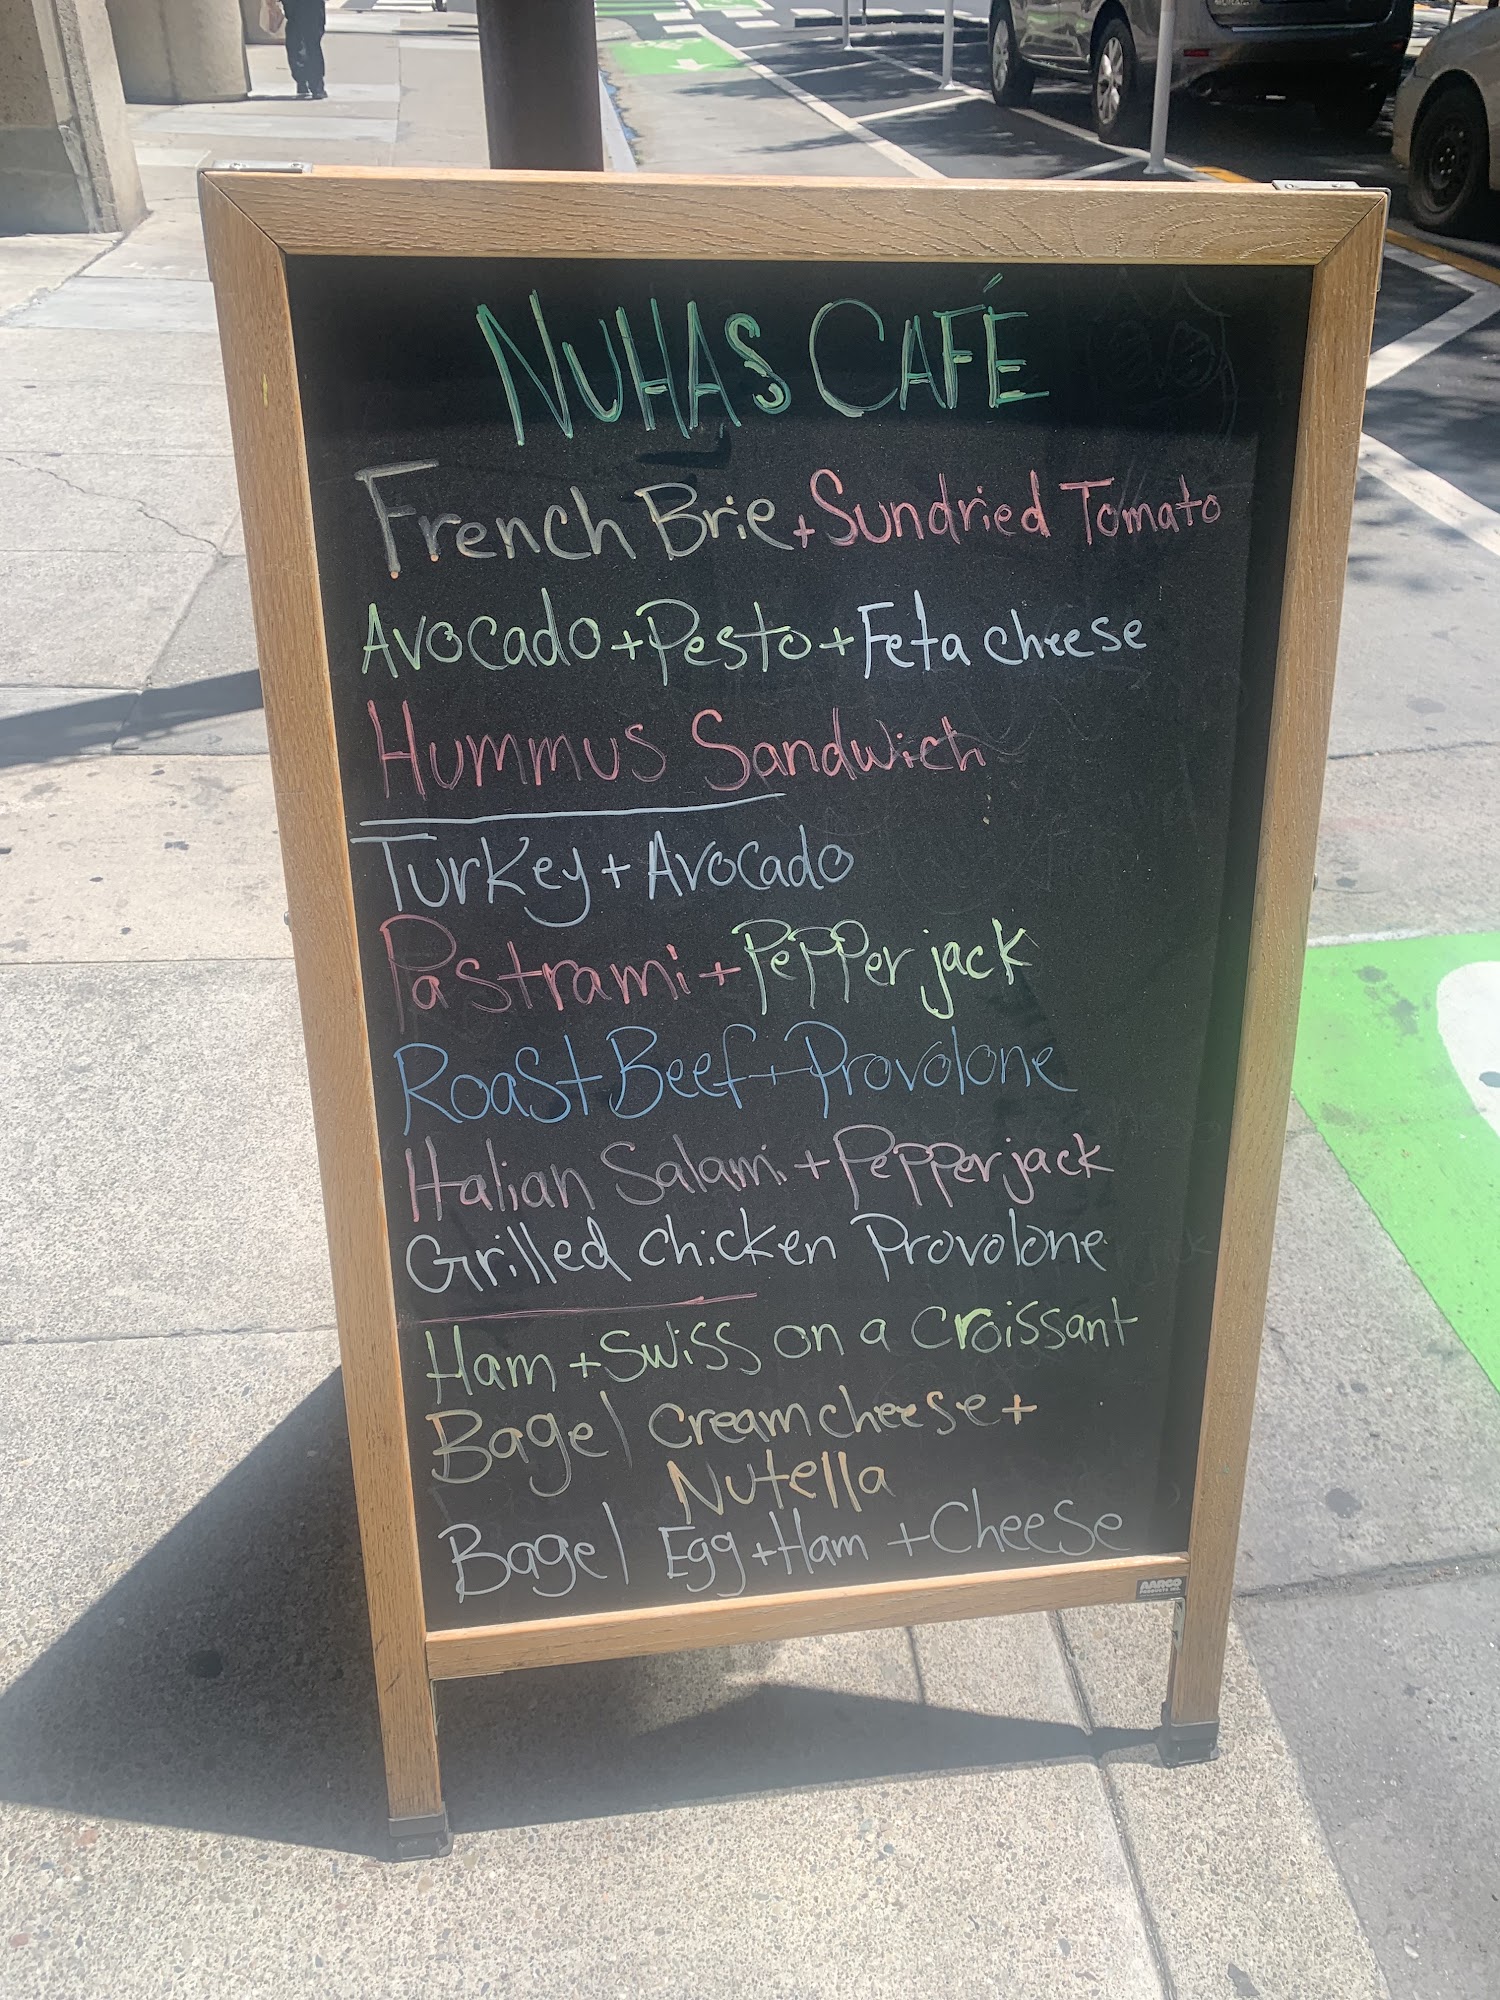 NUHAS CAFÉ
French Brie + Sundried Tomato
Avocado + Pesto + Feta cheese
Hummus Sandwich
Turkey + Avocado
Pastrami + Pepper jack
Roast Beef + Provolone
Italian Salami + Pepper jack
Grilled chicken Provolone
Ham + Swiss on a croissant
Bagel creamcheese +
Nutella
Bagel Egg + Ham + Cheese
AARCO
PRODUCTS INC.